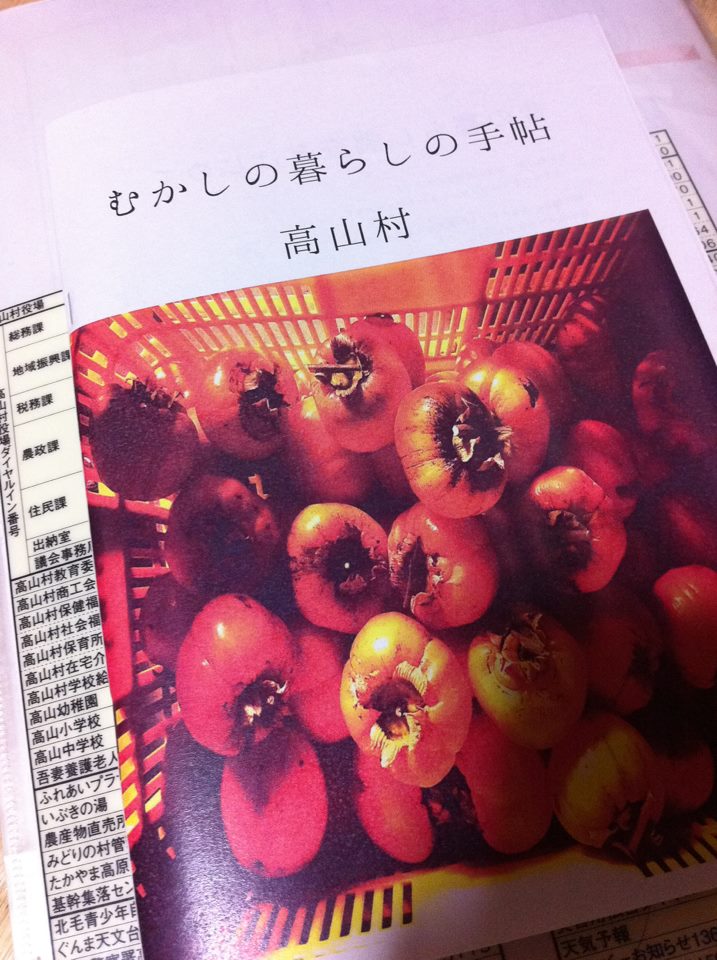 むかしの暮らしの手帖
高山村
山村役場
総務課
地域振興課
税務課
農政課
住民課
出納室
議会事務局
高山村役場ダイヤルイン番号
高山村教育委
高山村商工会
高山村保健福
高山村社会福
高山村保育所
高山村在宅介
高山村学校給
高山幼稚園
高山小学校
高山中学校
吾妻養護老人
ふれあいプラ
いぶきの湯
農産物直売所
みどりの村管
たかやま高原
基幹集落セン
北毛青少年自
ぐんま天文台
天気予報
お知らせ136